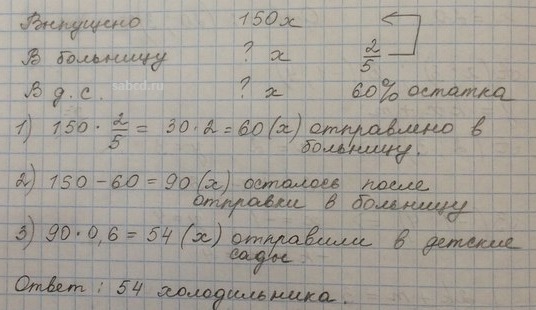 Выпущено 150х
В больницу ? х 2/5
sabcd.ru
В д.с. ? х 60% остатка
1) 150 · 2/5 = 30 · 2 = 60 (х) отправлено в
больницу.
2) 150 - 60 = 90 (х) осталось после
отправки в больницу
3) 90 · 0,6 = 54 (х) отправили в детские
сады.
Ответ: 54 холодильника.